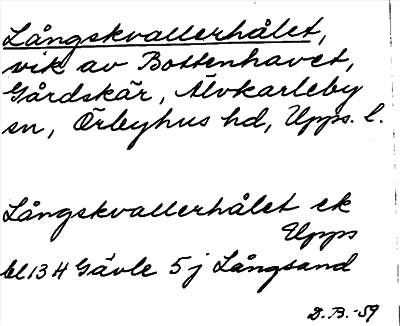 Långskvallerhålet,
vik av Bottenhavet,
Gårdskär, Älvkarleby
sn, Örbyhus hd, Upps. l.
Långskvallerhålet ek
Upps
bl 134 Gävle 5j Långsand
D.B.-59